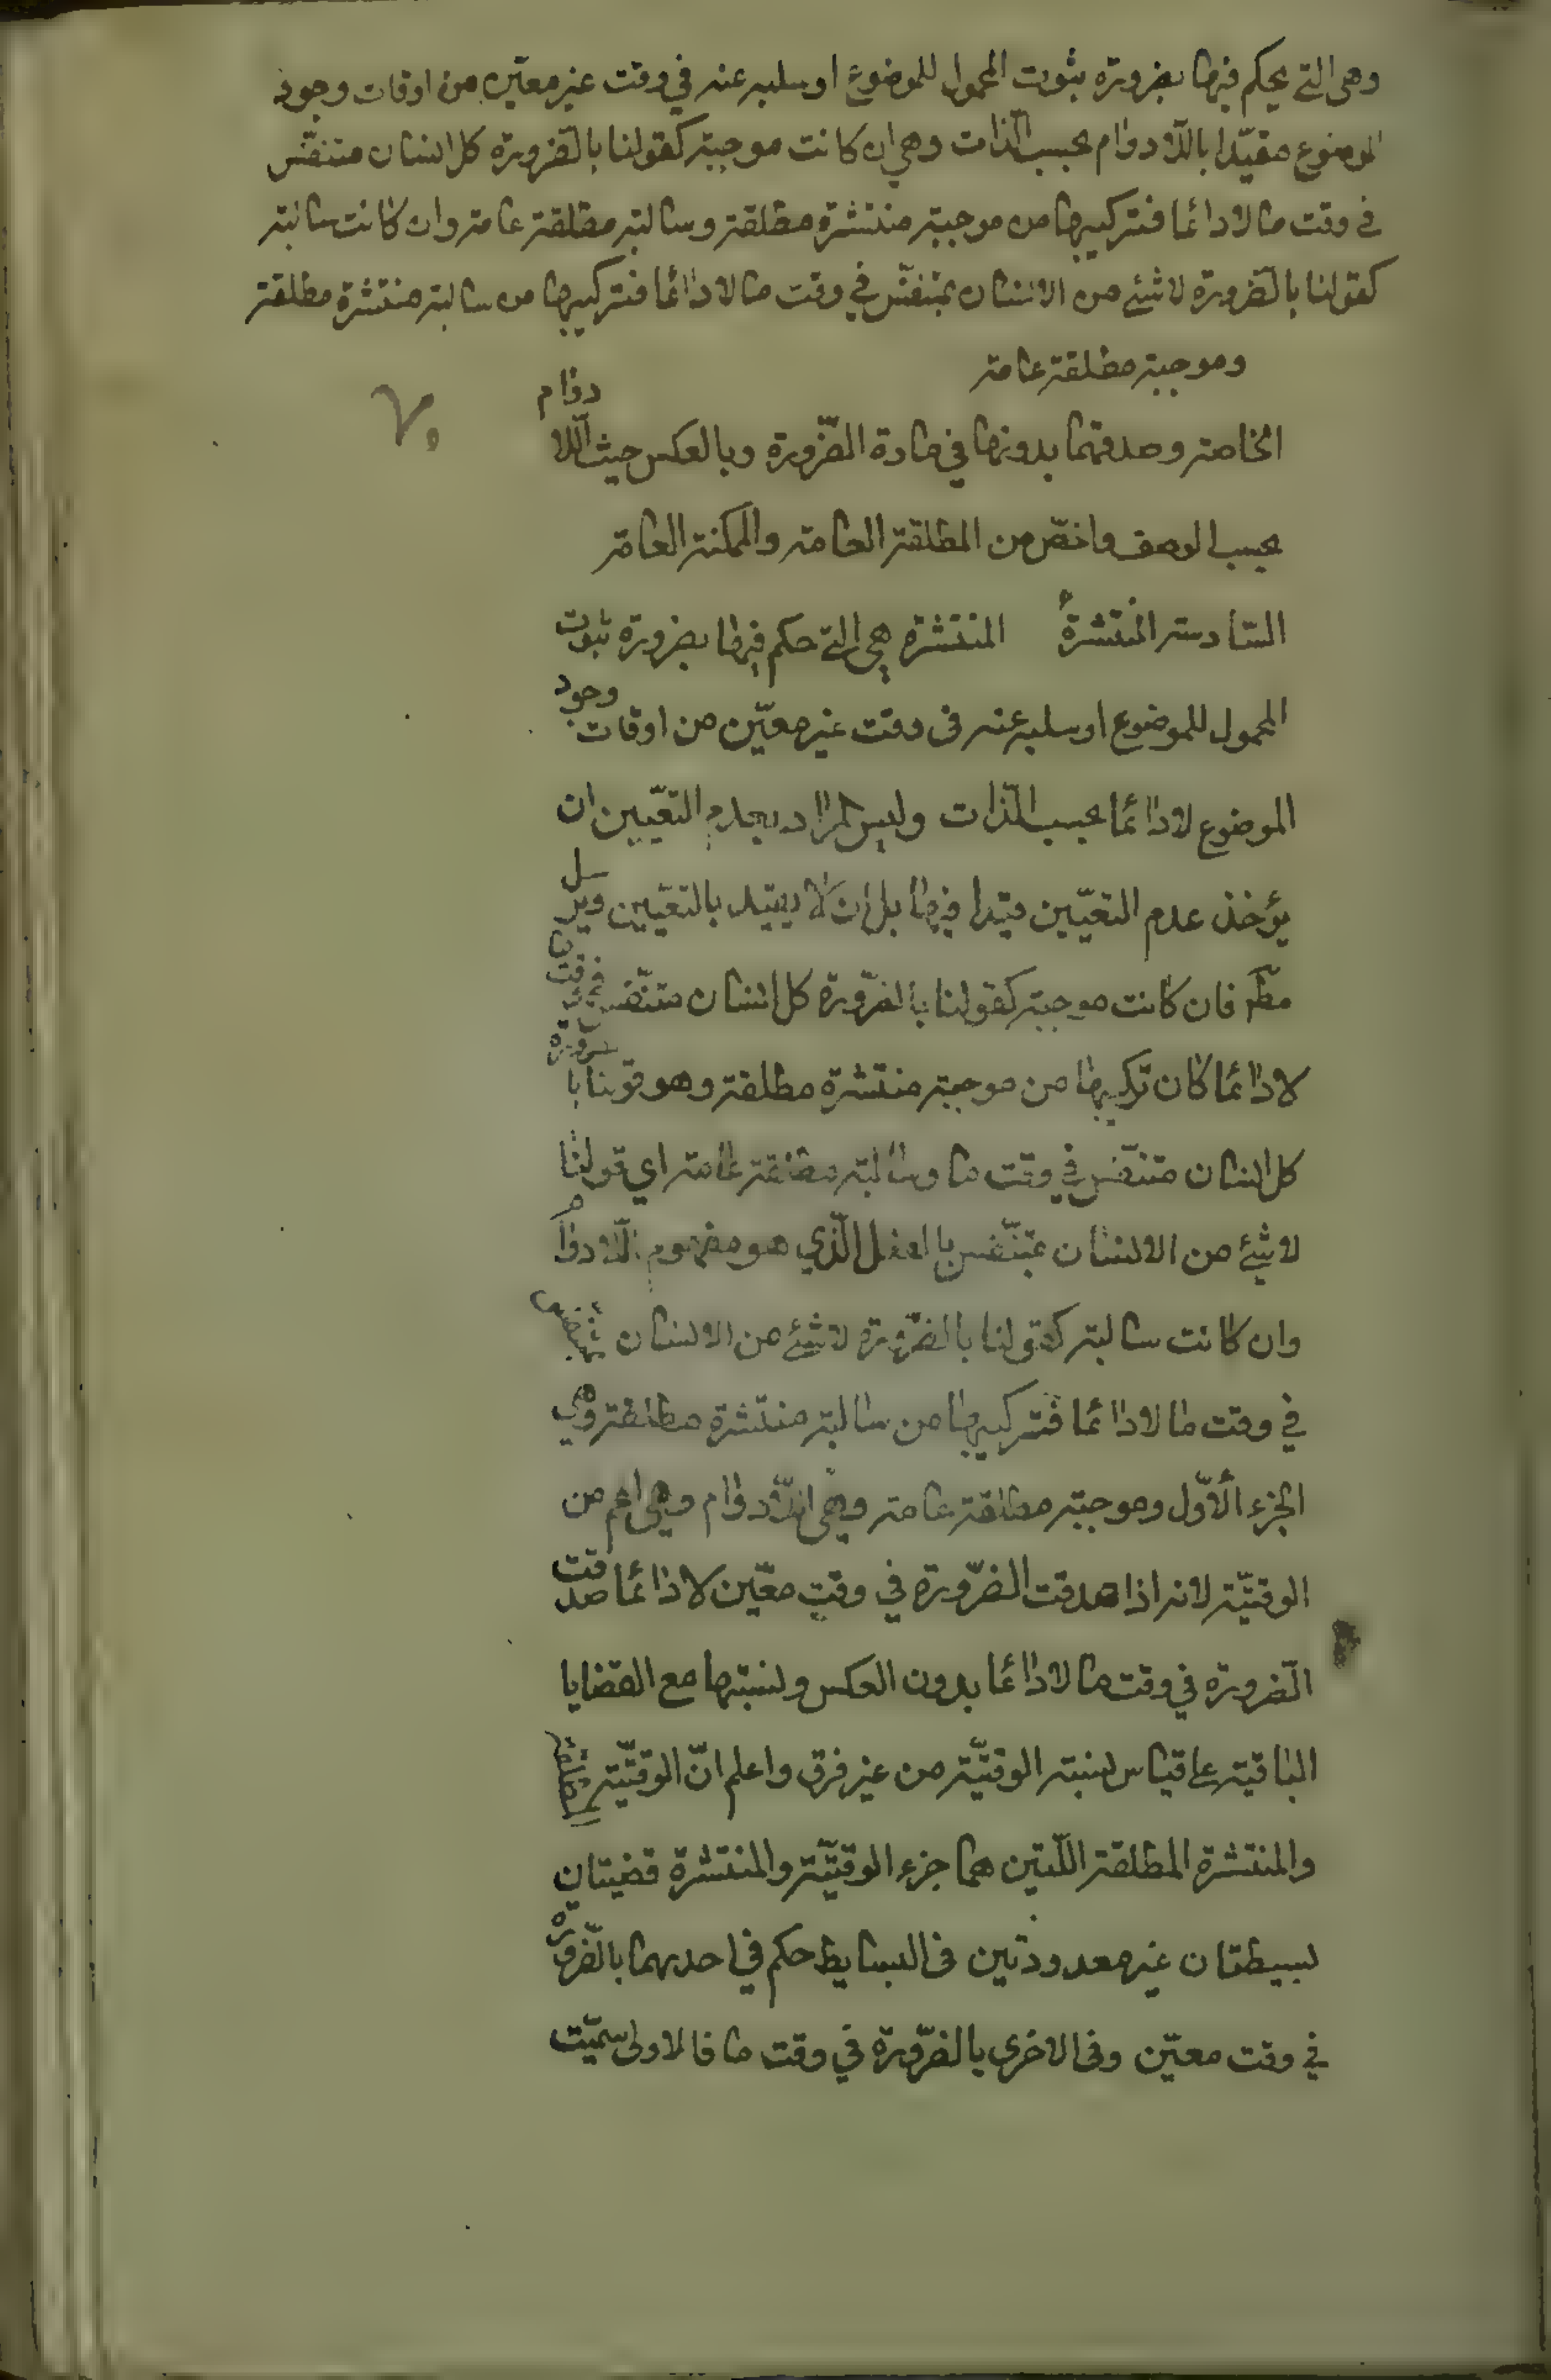 وهى التى يحكم فيها بضرورة ثبوت المحمول للموضوع او سلبه عنه في وقت غير معيّن من اوقات وجود
الموضوع مقيّدا باللّادوام بحسب الذّات وهي ان كانت موجبة كقولنا بالضّرورة كل انسان متنفّس
في وقت ما لا دائما فتركيبها من موجبة منتشرة مطلقة وسالبة مطلقة عامة وان كانت سالبة
كقولنا بالضّرورة لا شئ من الانسان بمتنفّس في وقت ما لا دائما فتركيبها من سالبة منتشرة مطلقة
وموجبة مطلقة عامة
٧٠
الخاصة وصدقهما بدونها في مادة الضّرورة وبالعكس حيث اللّادوام
بحسب الوصف واخصّ من المطلقة العامة والممكنة العامة
السّادسة المنتشرةُ المنتشرة هي الّتى حكم فيها بضرورة ثبوت
المحمول للموضوع او سلبه عنه فى وقت غير معيّن من اوقات وجود
الموضوع لا دائما بحسب الذّات وليس المراد بعدم التعيّين ان
يؤخذ عدم التعيّين قيّدا فيها بل ان لا يقيّد بالتعيّين ويرسل
مطّ فان كانت موجبة كقولنا بالضّرورة كل انسان متنّفس في وقت ما
لا دائما كان تركيبها من موجبة منتشرة مطلقة وهو قولنا بالضّرورة
كل انسان متنفّس في وقت ما وسالبة مطلقة عامة اي قولنا
لا شئ من الانسان بمتنّفس بالفعل الّذي هو مفهوم اللّادوام
وان كانت سالبة كقولنا بالضّرورة لا شئ من الانسان بمتنفس
في وقت ما لا دائما فتركيبها من سالبة منتشرة مطلقة وهي
الجزء الأوّل وموجبة مطلقة عامة وهى اللّادوام وهى اعم من
الوقتيّة لانه اذا صدقت الضّرورة في وقتٍ معّين لا دائما صدقت
الضّرورة في وقت ما لا دائما بدون العكس ونسبتها مع القضايا
الباقية على قياس نسبة الوقتيّة من غير فرق واعلم انّ الوقتيّة المطلقة
والمنتشرة المطلقة اللّتين هما جزء الوقتيّة والمنتشرة قضيتان
بسيطتان غير معدودتين فى البسايط حكم في احديهما بالضّرورة
في وقت معيّن وفى الاخرى بالضّرورة في وقت ما فالاولى سمّيت